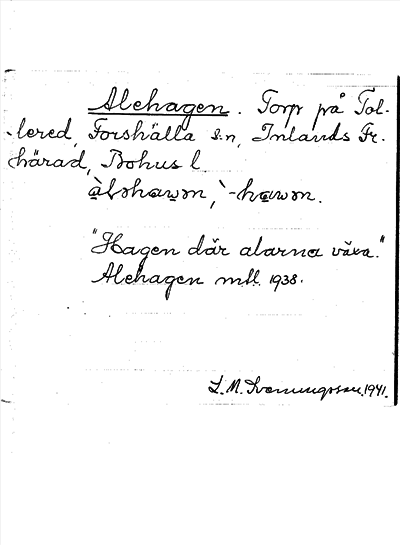 Alehagen. Torp på Tol-
lered, Forshälla s:n, Inlands Fr.
härad, Bohus l
"Hagen där alarna växa."
Alehagen mtl. 1938.
L. M. Svenungsson. 1941.